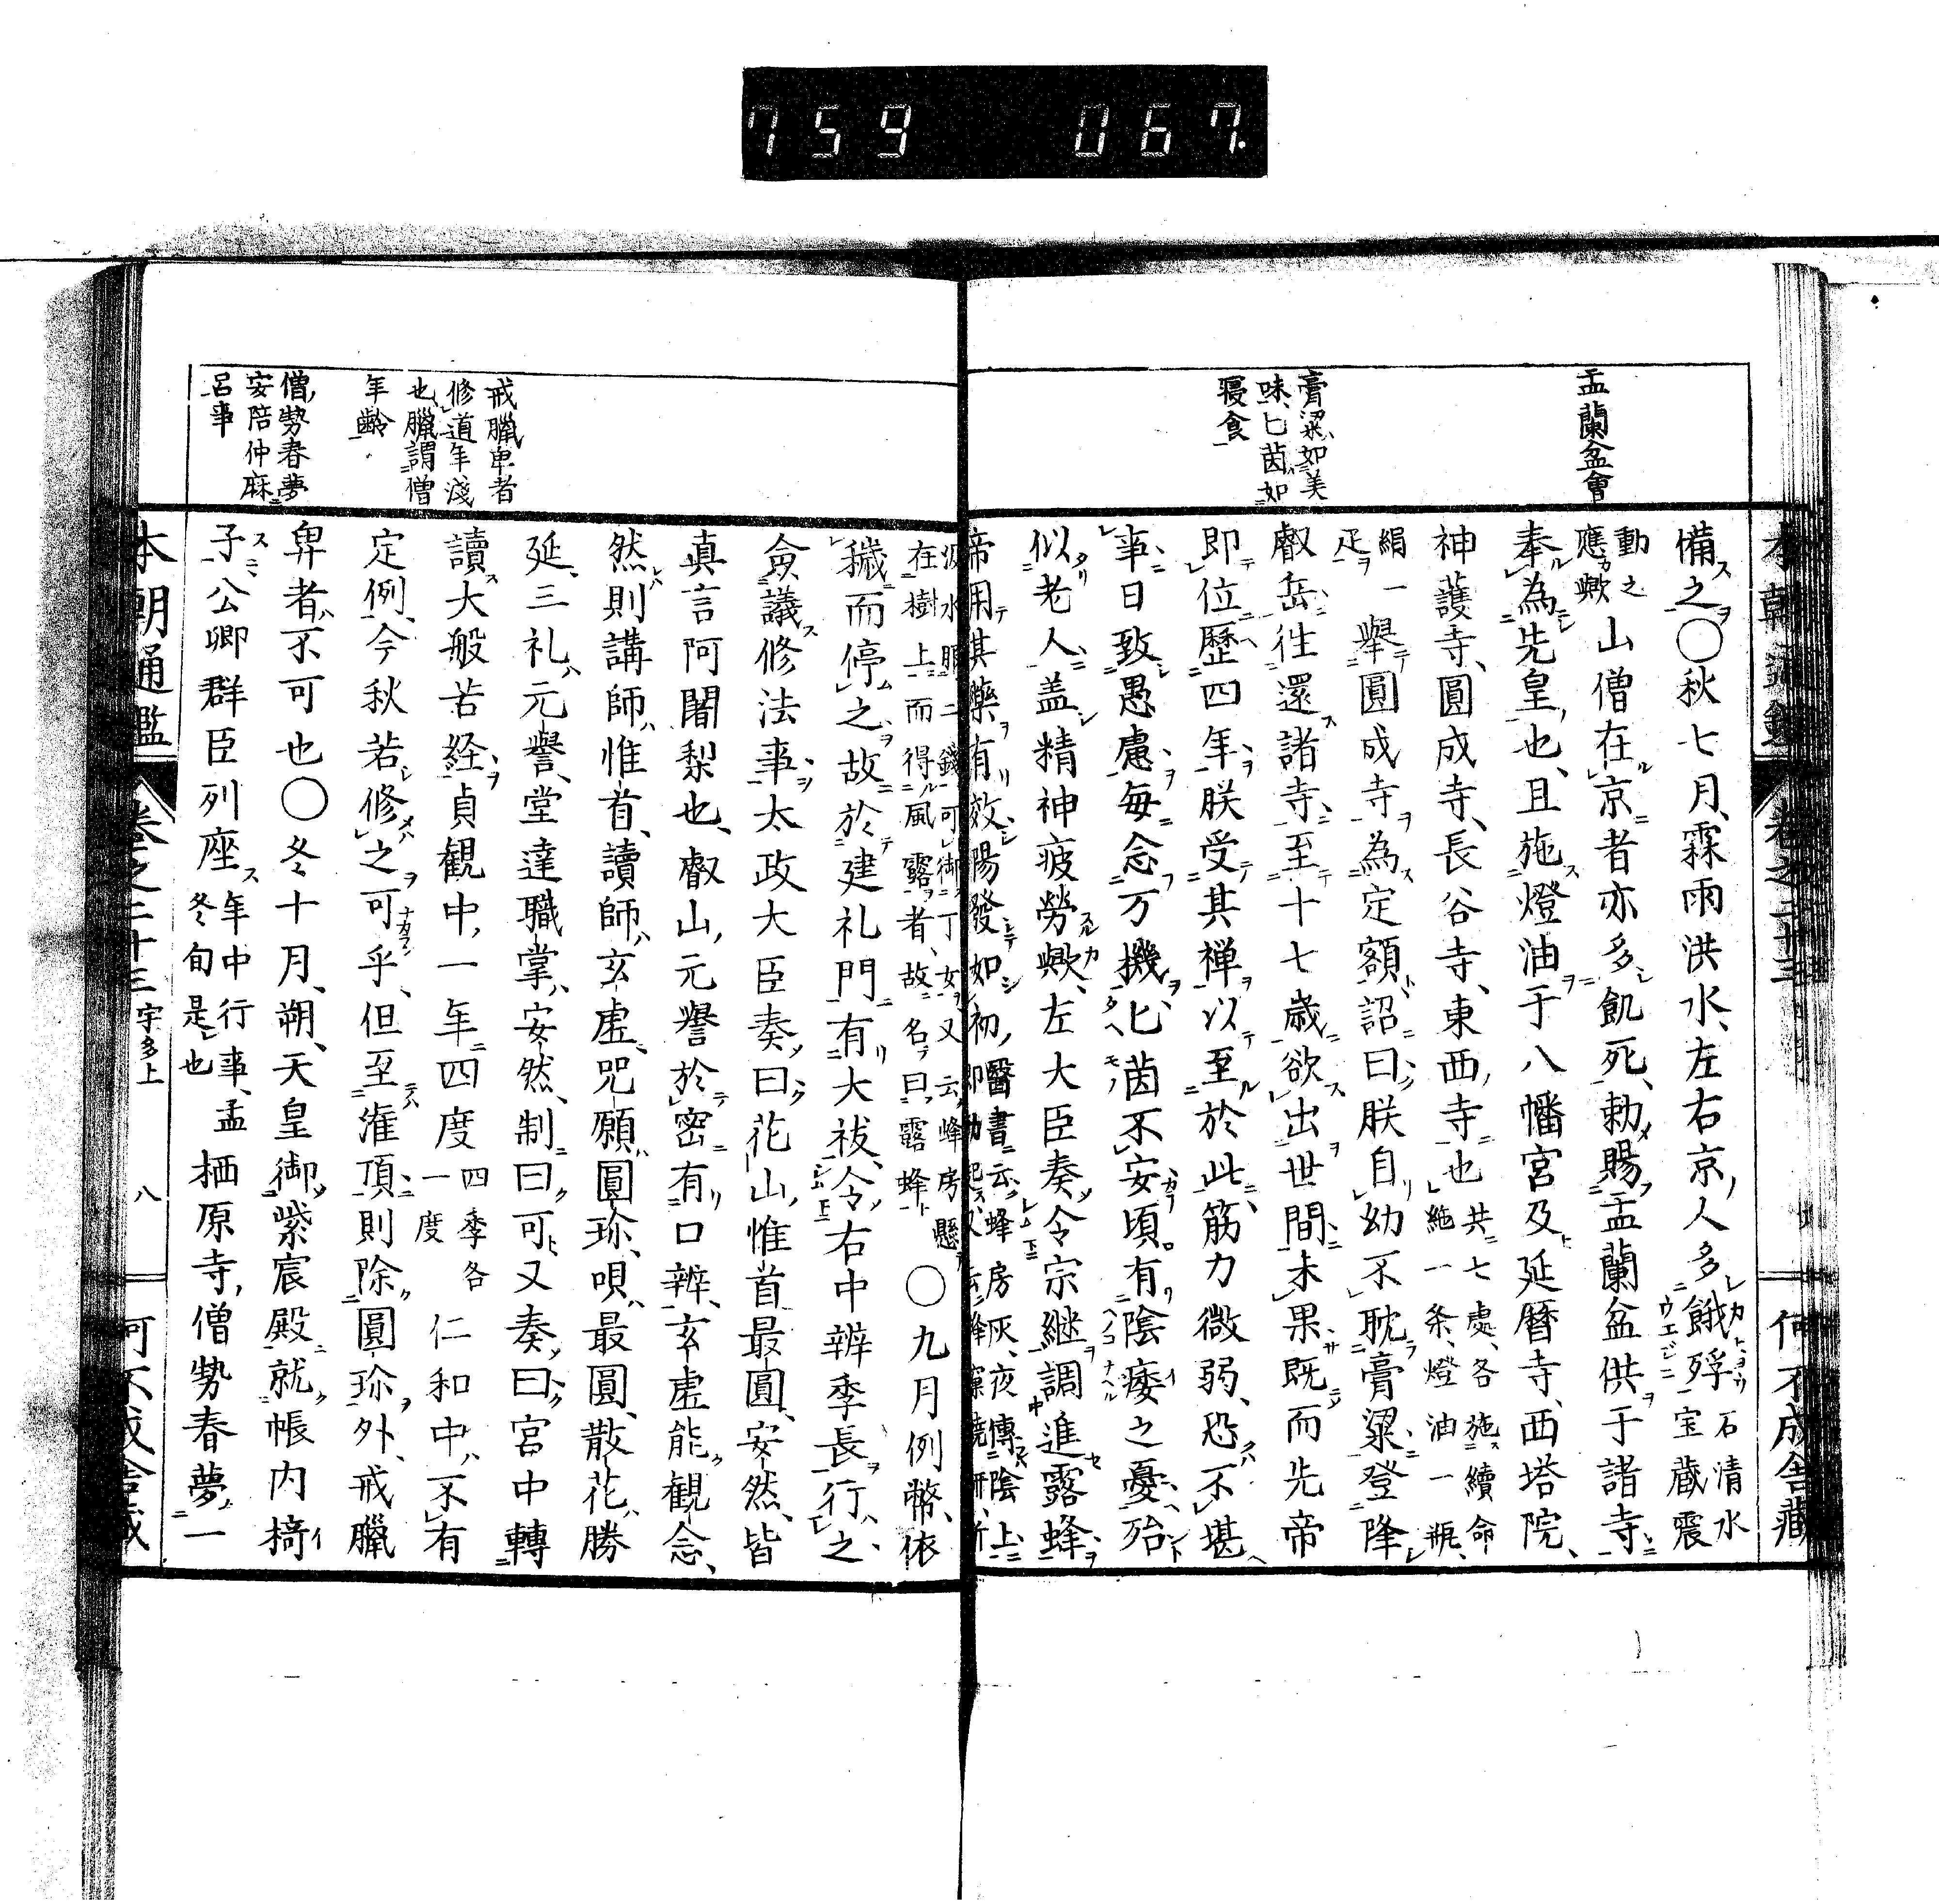 759 067.
本朝通鑑 卷之二十三 何不成舎藏
盂蘭盆會
膏粱如美
味匕茵如
寝食
備之〇秋七月霖雨洪水左右京人多餓殍石清水宝蔵震
動之應歟山僧在京者亦多飢死勅賜盂蘭盆供于諸寺
奉為先皇也且施燈油于八幡宮及延暦寺西塔院
神護寺圓成寺長谷寺東西寺也共七處各施續命絁一条燈油一瓶
絹一疋舉圓成寺為定額詔曰朕自幼不耽膏粱登降
叡岳往還諸寺至十七歳欲出世間未果既而先帝
即位歴四年朕受其禅以至於此筋力微弱恐不堪
事日致愚慮毎念万機匕茵不安頃有陰痿之憂殆
似老人盖精神疲勞歟左大臣奏令宗継調進露蜂
帝用其藥有效陽發如初醫書云蜂房灰夜傳陰上即勃起
汲水服二錢可御丁女又云蜂房懸在樹上而得風露者故名曰露蜂〇九月例幣依
穢而停之故於建礼門有大祓令右中辨季長行之
僉議修法事太政大臣奏曰花山惟首最圓安然皆
真言阿闍梨也叡山元譽於密有口辨玄虚能観念
然則講師惟首讀師玄虚咒願圓珎唄最圓散花勝
延三礼元譽堂達職掌安然制曰可又奏曰宮中轉
讀大般若経貞観中一年四度四季各一度仁和中不有
定例今秋若修之可乎但至潅頂則除圓珎外戒臘
卑者不可也〇冬十月朔天皇御紫宸殿就帳内椅
子公卿群臣列座年中行事孟冬旬是也栖原寺僧勢春夢一
戒臘卑者
修道年淺
也臘謂僧
年齢
僧勢春夢
安陪仲麻
呂事
本朝通鑑 卷之二十三 宇多上 八 何不成舎藏